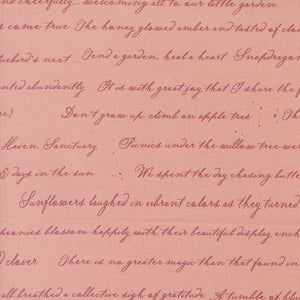 nd cheerfully... welcoming all to our little garden
s come true The honey glowed amber and tasted of clov
uebird's nest... Tend a garden, heal a heart Snapdragon
nted abundantly It is with great joy that I share the f
re) Don't grow up, climb an apple tree Th
Haven, Sanctuary Picnics under the willow tree wer
E days in the sun ... We spent the day chasing butte
Sunflowers laughed in vibrant colors as they turned
peonies blossom happily with their beautiful display ench
d clover There is no greater magic than that found in
all breathed a collective sigh of gratitude A tumble of bl